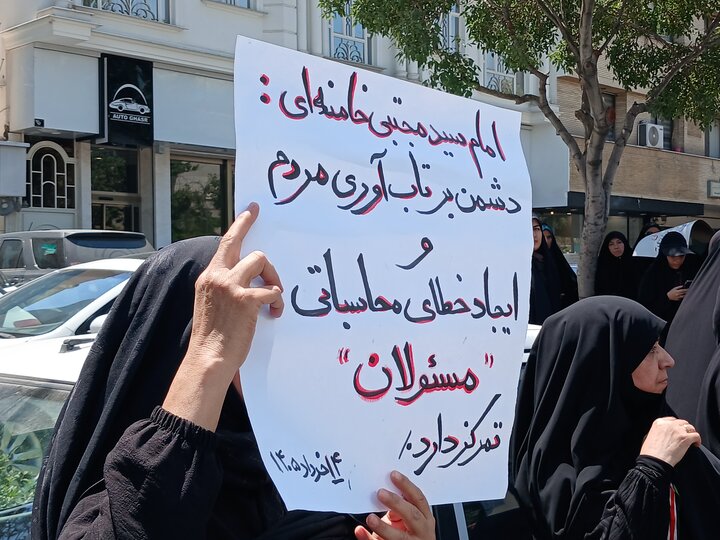 AUTO GHASR
امام سید مجتبی خامنه‌ای :
دشمن بر تاب‌آوری مردم
و
ایجاد خطای محاسباتی
"مسئولان"
تمرکز دارد.
۱۴ خرداد ۱۴۰۵